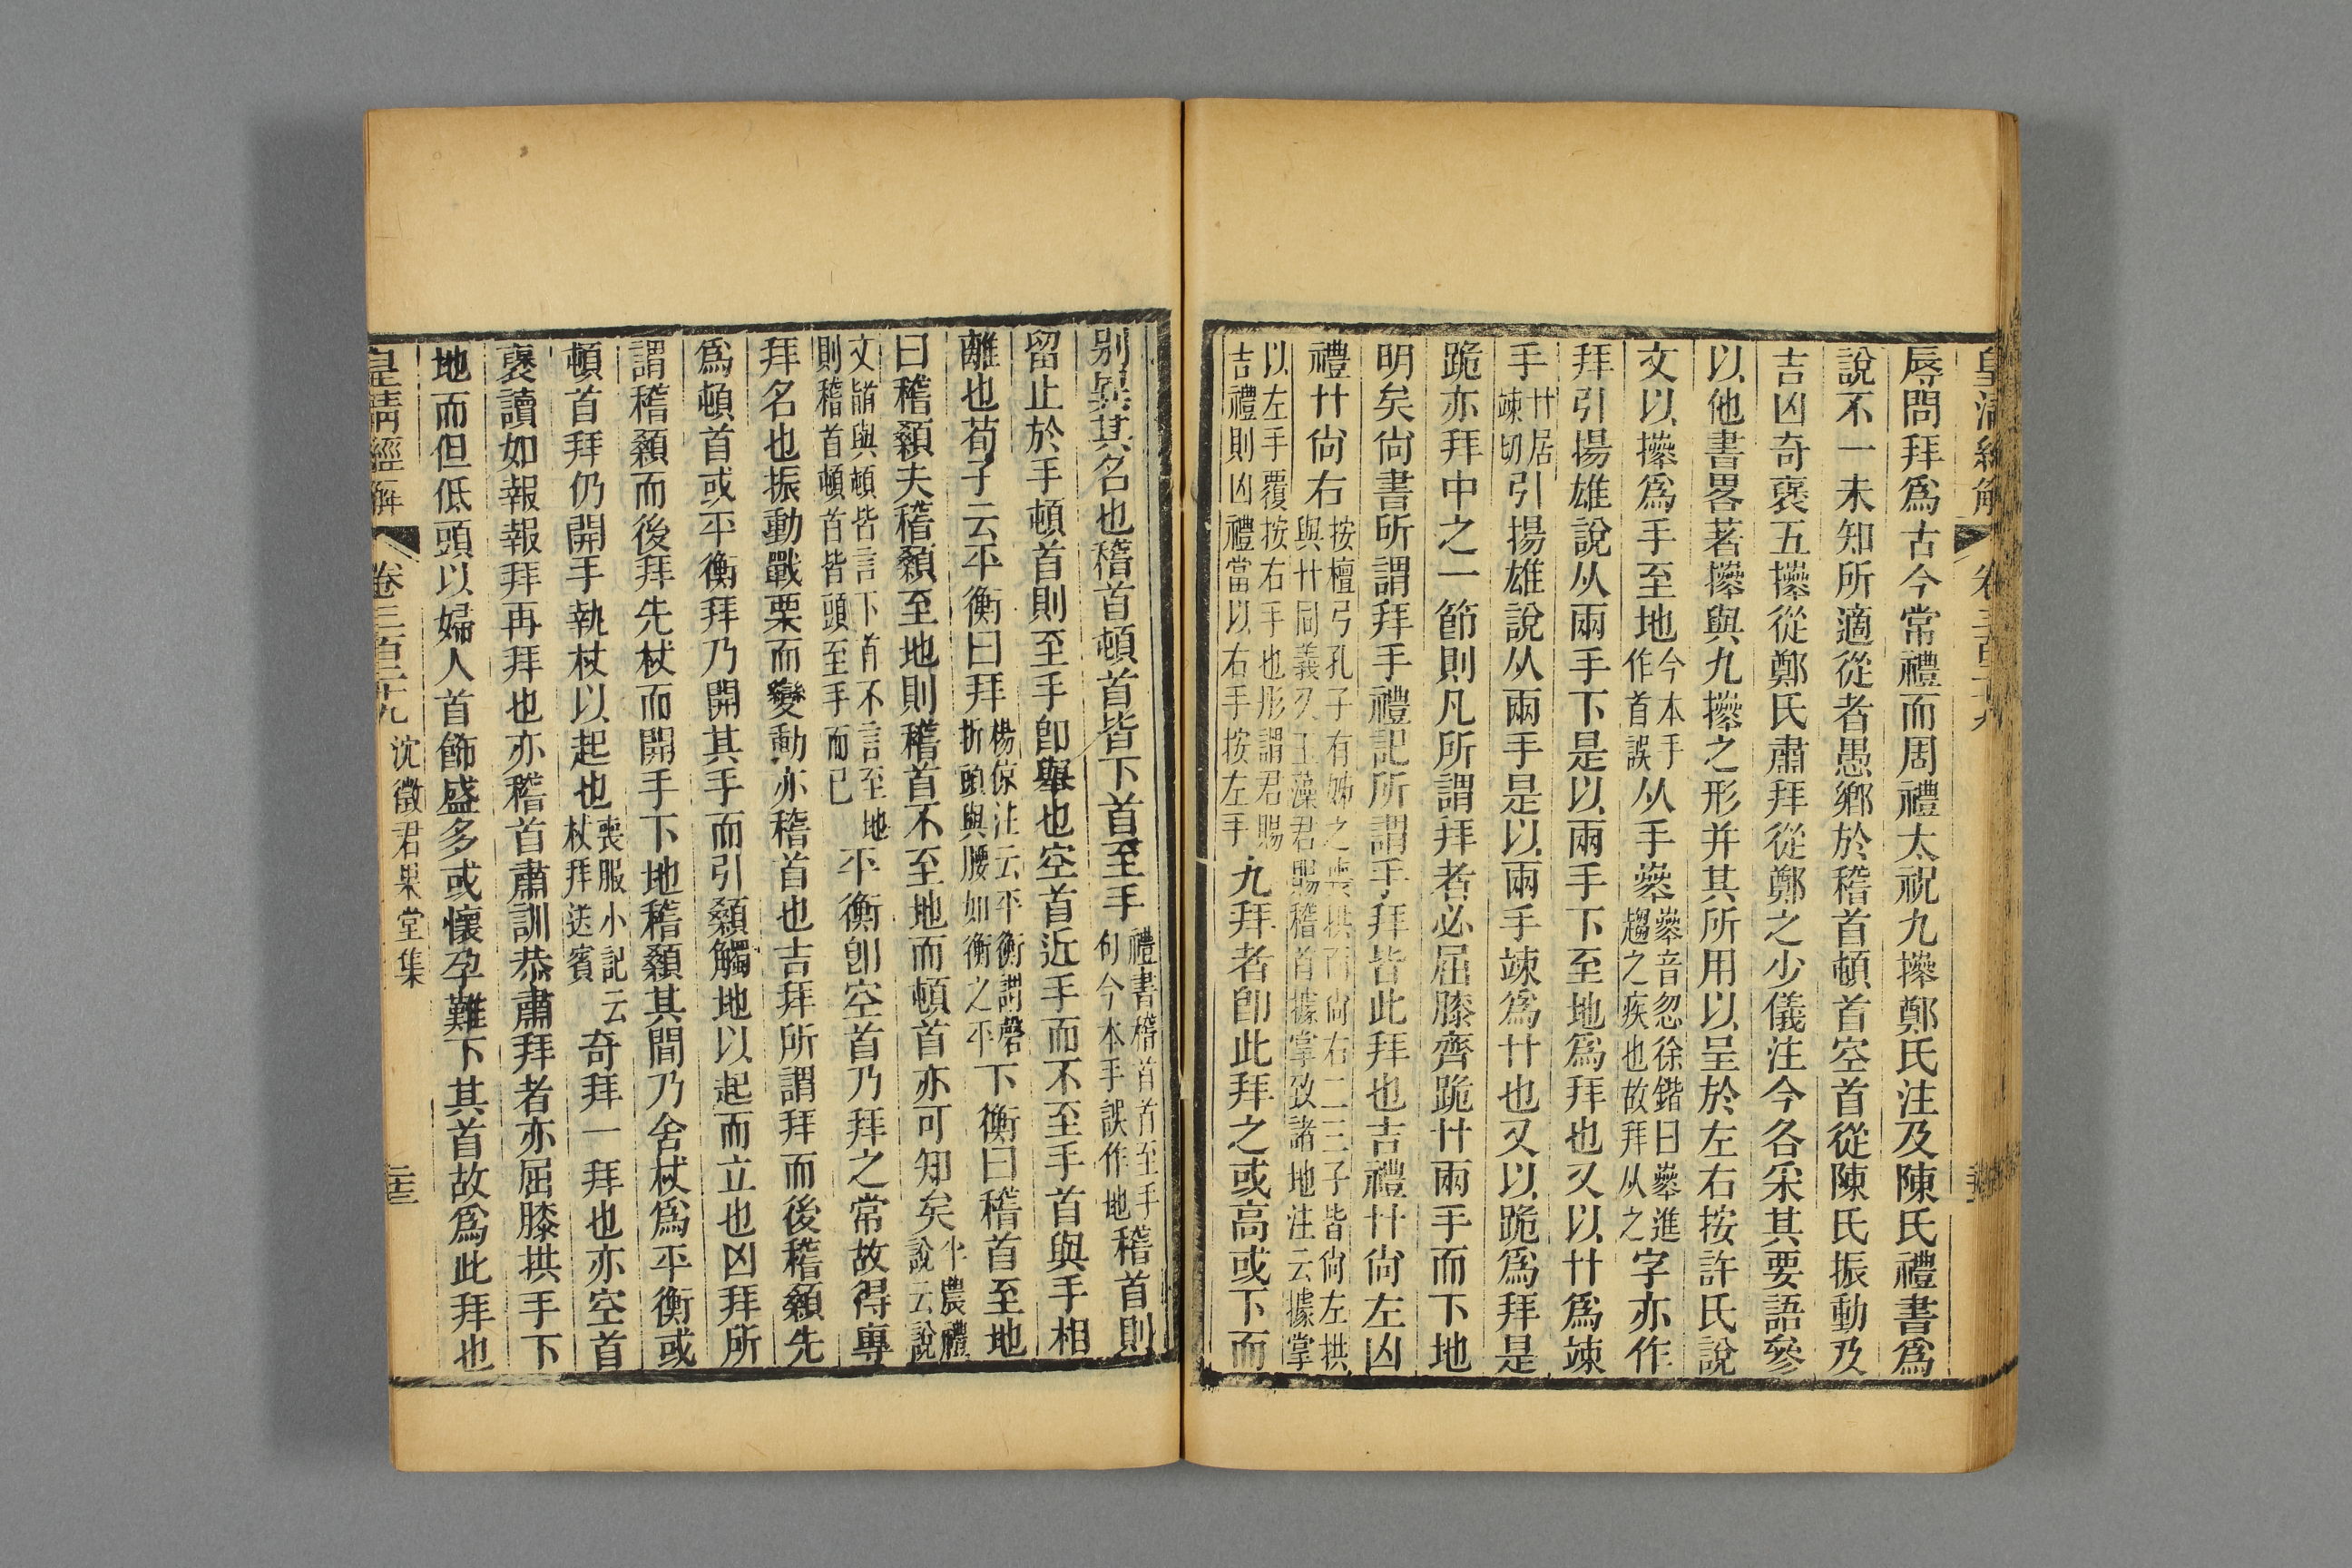 皇清經解 卷三百二十九
辱問拜爲古今常禮而周禮太祝九㩓鄭氏注及陳氏禮書爲
說不一未知所適從者愚鄉於稽首頓首空首從陳氏振動及
吉凶奇褒五㩓從鄭氏肅拜從鄭之少儀注今各采其要語參
以他書畧著㩓與九㩓之形并其所用以呈於左右按許氏說
文以㩓爲手至地今本手作首誤从手𠦪𠦪音忽徐鍇曰𠦪進趨之疾也故拜从之字亦作
拜引揚雄說从兩手下是以兩手下至地爲拜也又以廾爲竦
手廾居竦切引揚雄說从兩手是以兩手竦爲廾也又以跪爲拜是
跪亦拜中之一節則凡所謂拜者必屈膝齊跪廾兩手而下地
明矣尙書所謂拜手禮記所謂手拜皆此拜也吉禮廾尙左凶
禮廾尙右按檀弓孔子有姊之喪拱而尙右二三子皆尙左拱與廾同義又玉藻君賜稽首據掌致諸地注云據掌
以左手覆按右手也形謂君賜吉禮則凶禮當以右手按左手九拜者卽此拜之或高或下而
別異其名也稽首頓首皆下首至手禮書稽首首至手句今本手誤作地稽首則
留止於手頓首則至手卽舉也空首近手而不至手首與手相
離也荀子云平衡曰拜楊倞注云平衡謂磬折頭與腰如衡之平下衡曰稽首至地
曰稽顙夫稽顙至地則稽首不至地而頓首亦可知矣半農禮說云說
文䭫與頓皆言下首不言至地則稽首頓首皆頭至手而已平衡卽空首乃拜之常故得專
拜名也振動戰栗而變動亦稽首也吉拜所謂拜而後稽顙先
爲頓首或平衡拜乃開其手而引顙觸地以起而立也凶拜所
謂稽顙而後拜先杖而開手下地稽顙其間乃舍杖爲平衡或
頓首拜仍開手執杖以起也喪服小記云杖拜送賓奇拜一拜也亦空首
褒讀如報報拜再拜也亦稽首肅訓恭肅拜者亦屈膝拱手下
地而但低頭以婦人首飾盛多或懷孕難下其首故爲此拜也
皇清經解 卷三百二十九 沈徵君果堂集 二十三